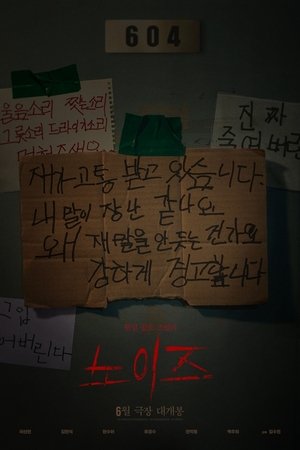 604
울음소리 짖는소리
그릇소리 드라이기소리
멈춰주세요
진짜
죽여버린
제가 고통 받고 있습니다.
내 말이 장난 같나요
왜 제 말을 안듣는 건가요
강하게 경고합니다
어버린다
노이즈
6월 극장 대개봉